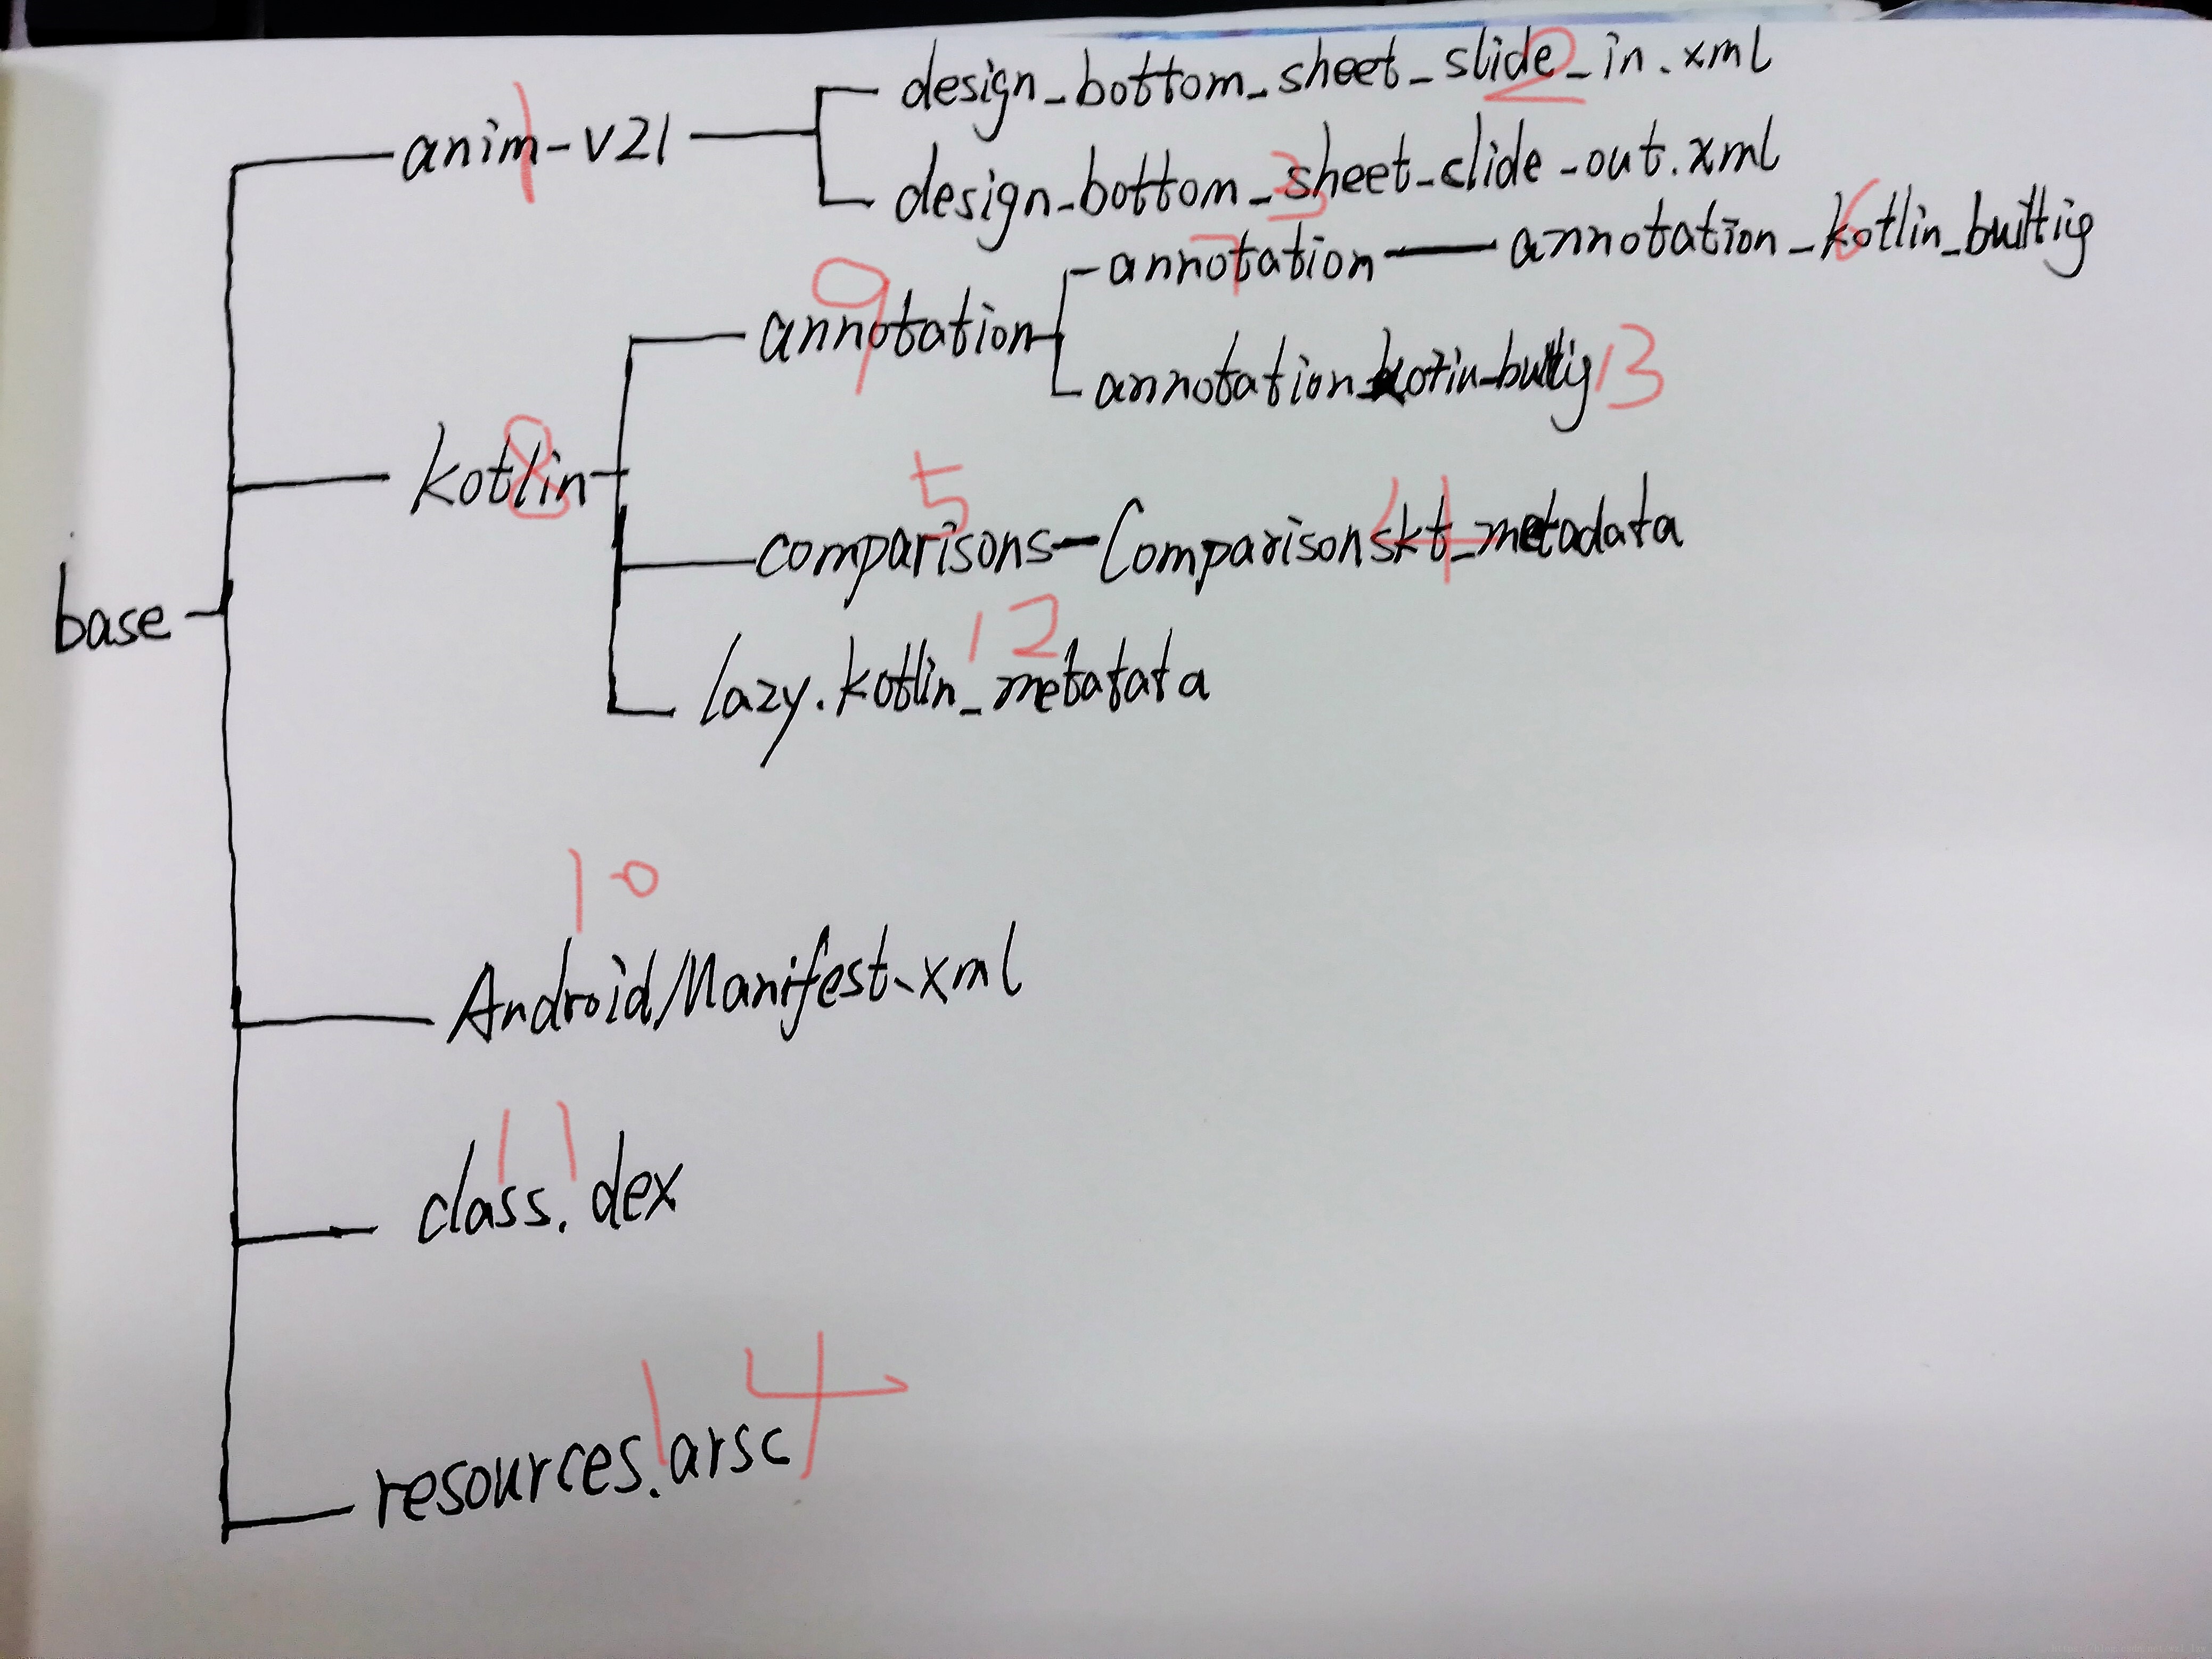 design_bottom_sheet_slide_in.xml
2
anim-v21
1
design_bottom_sheet_clide-out.xml
3
annotation
7
annotation_kotlin_builtig
6
annotation
9
annotation_kotin_builtig
13
kotlin
8
comparisons
5
Comparisonskt_metadata
4
base
lazy.kotlin_metatata
12
10
AndroidManifest.xml
11
class.dex
14
resources.arsc